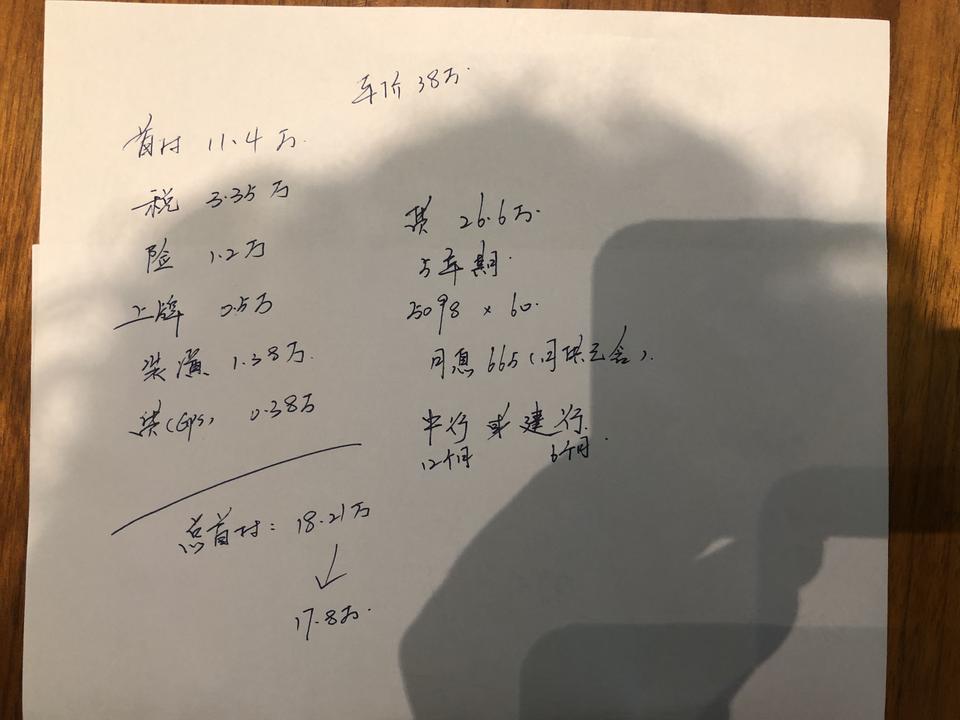 车价 38万.
首付 11.4万.
税 3.35万
险 1.2万
上牌 0.5万
装潢 1.38万.
(GPS) 0.38万
总首付: 18.21万
17.8万.
贷 26.6万.
5年期.
5098 × 60.
月息 665 (月供已含).
中行 或 建行.
12个月 6个月.